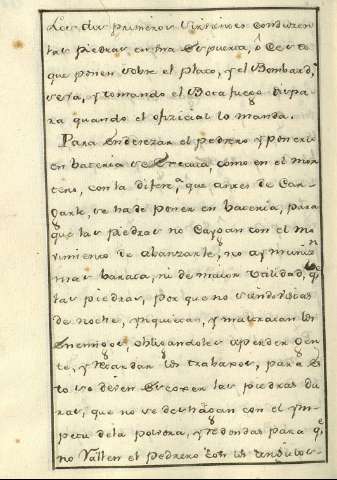 Los dos primeros sirvientes conduzen
las piedras en una Espuerta, ò Cesto
que ponen sobre el plato, y el Bombard.º
ceva, y tomando el Botafuego dispa-
ra quando el oficial lo manda.
Para enderezar el pedrero y ponerle
en bateria se Executa, como en el mor-
tero, con la diferen.ª que antes de Car-
garle, se ha de poner en bateria, para
que las piedras no Caygan con el mo-
vimiento de abanzarle, no ay munizⁿ
mas barata, ni de maior utilidad, q.e
las piedras, por que no viendo
de noche, y maltratan los
Enemigos, obligandoles a perder Gen-
te, y retardan los trabajos, para es-
to se deven Escoger las piedras du-
ras, que no se deshagan con el ym-
petu dela polvora, y redondas para q.e
no Vallen el pedrero con los angulos.